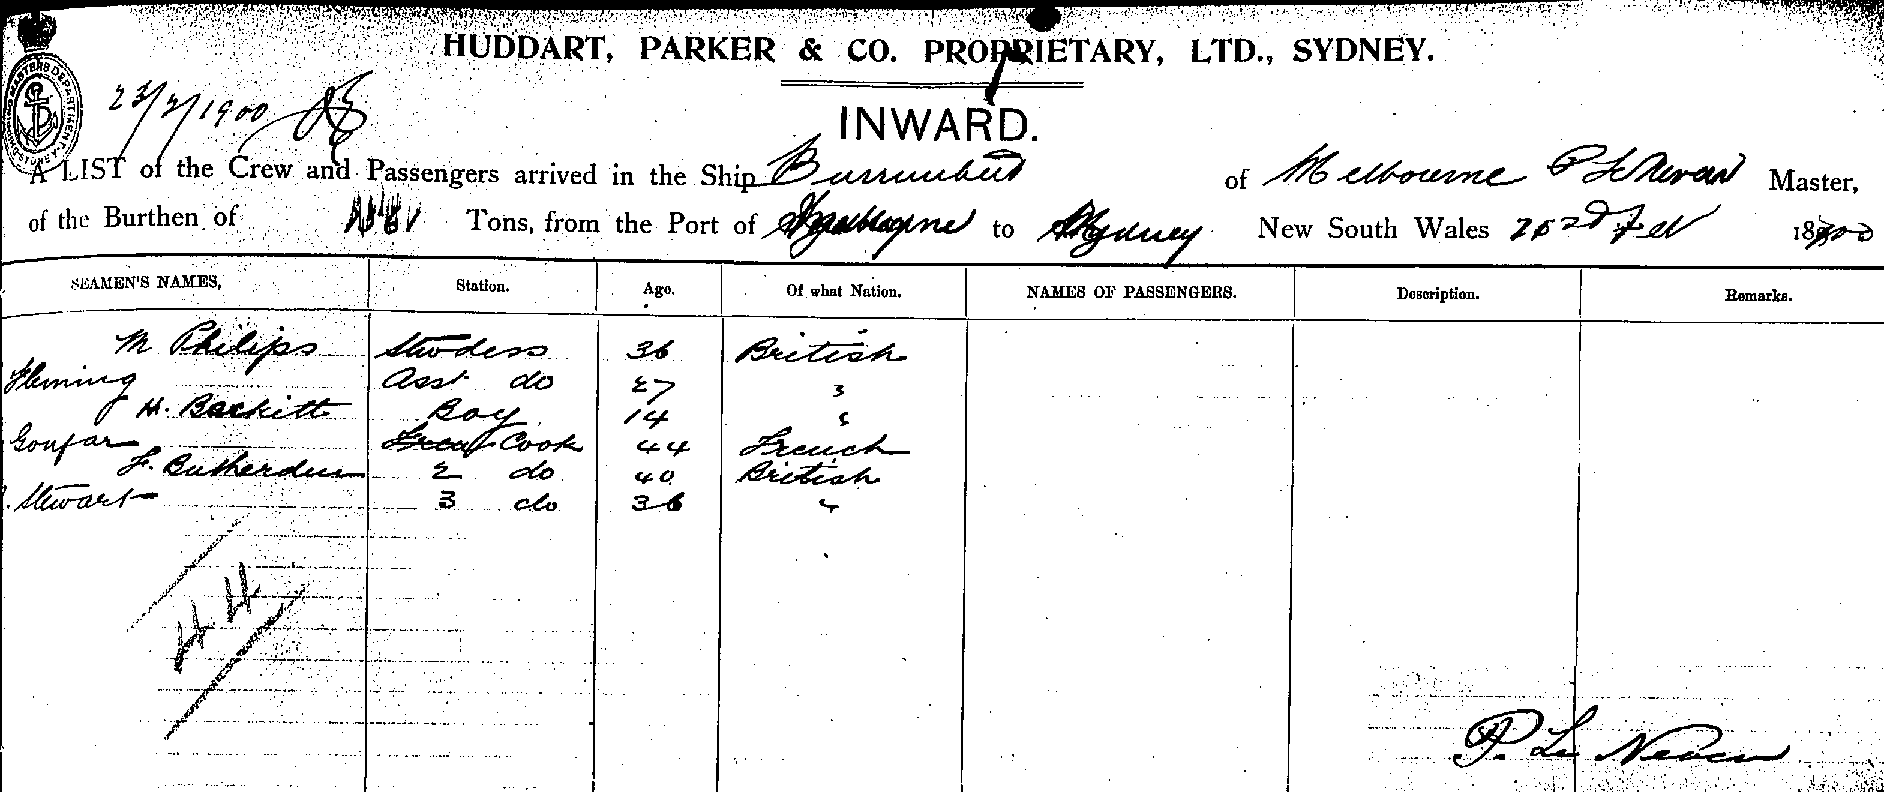 HUDDART, PARKER & CO. PROPRIETARY, LTD., SYDNEY.
23/2/1900
INWARD.
A LIST of the Crew and Passengers arrived in the Ship Burrumbeet of Melbourne P Le Neveu Master,
of the Burthen of Tons, from the Port of to Sydney New South Wales Feb 1900
SEAMEN'S NAMES, Station. Age. Of what Nation. NAMES OF PASSENGERS. Description. Remarks.
M Philips Stewdess 36 British
Fleming Asst do 27 "
H. Backitt Boy 14 "
Goufar Cook 44 French
F. 2 do 40 British
Stewart 3 do 36 "
44
P. Le Neveu